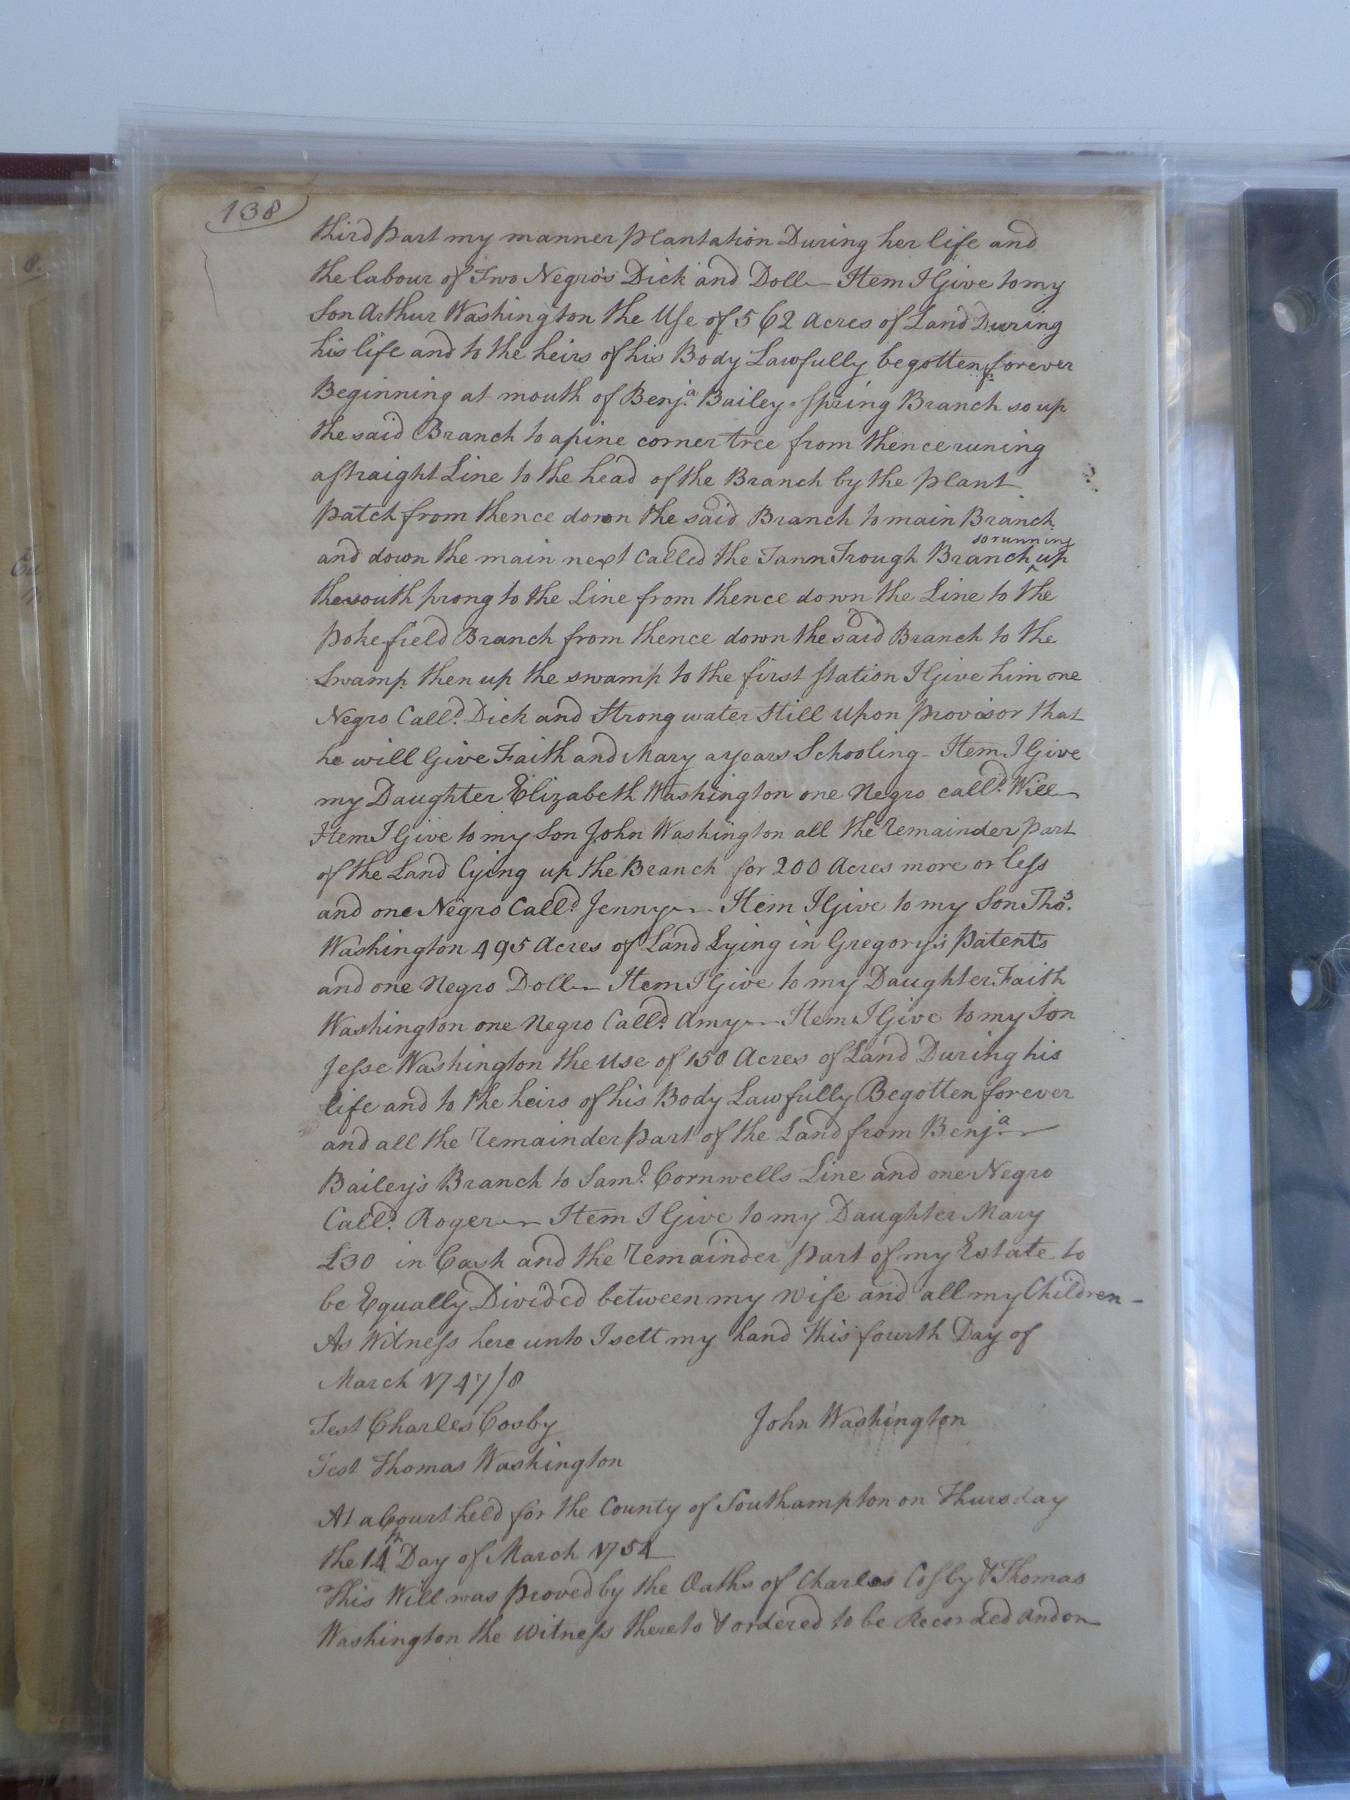 138
third Part my manner plantation During her life and
the labour of Two Negro's Dick and Doll Item I Give to my
Son Arthur Washington the Use of 562 Acres of Land During
his life and to the heirs of his Body Lawfully begotten forever
Beginning at mouth of Benja. Bailey Spring Branch so up
the said Branch to a pine corner tree from thence runing
a straight Line to the head of the Branch by the plant
patch from thence down the said Branch to main Branch
so running
and down the main next Called the Tann Trough Branch ^ up
the south prong to the Line from thence down the Line to the
pokefield Branch from thence down the said Branch to the
Swamp then up the swamp to the first Station I Give him one
Negro Calld. Dick and Strong water Still upon provisor that
he will Give Faith and Mary a years Schooling - Item I Give
my Daughter Elizabeth Washington one Negro calld. Will
Item I Give to my Son John Washington all the remainder part
of the Land lying up the Branch for 200 Acres more or less
and one Negro Calld. Jenny Item I Give to my Son Thos.
Washington 495 Acres of Land Lying in Gregory's Patents
and one Negro Doll Item I Give to my Daughter Faith
Washington one Negro Calld. Amy Item I Give to my Son
Jesse Washington the Use of 150 Acres of Land During his
life and to the heirs of his Body Lawfully Begotten forever
and all the remainder part of the Land from Benja.
Bailey's Branch to Saml. Cornwells Line and one Negro
Calld. Roger Item I Give to my Daughter Mary
£30 in Cash and the remainder part of my Estate to
be Equally Divided between my wife and all my Children -
As Witness here unto I sett my hand this fourth Day of
March 1747/8
Test Charles Cosby John Washington
Test Thomas Washington
At a Court held for the County of Southampton on Thursday
the 14th Day of March 1754
This Will was proved by the Oaths of Charles Cosby & Thomas
Washington the Witness thereto & ordered to be Recorded and on